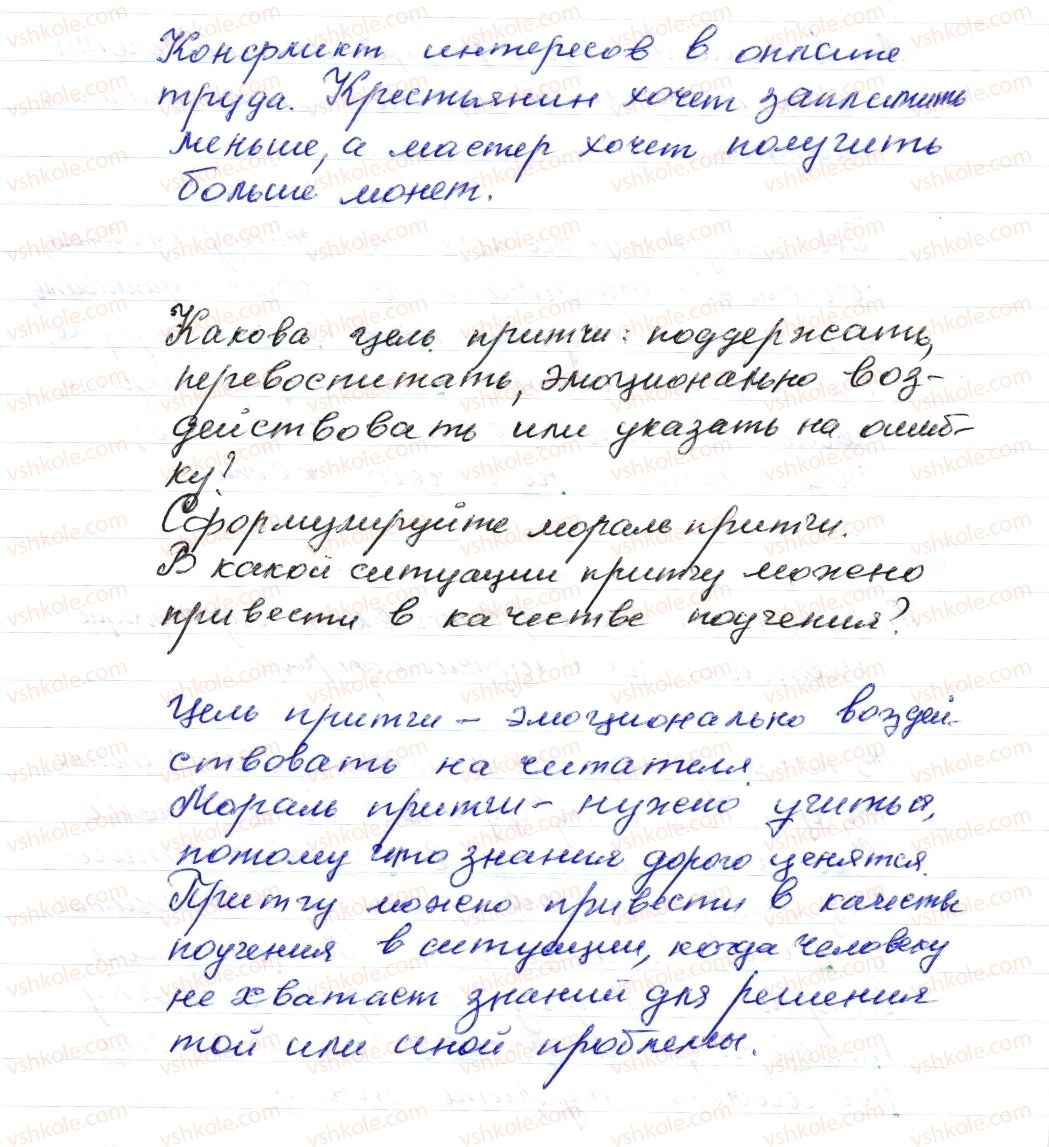 Конфликт интересов в оплате
труда. Крестьянин хочет заплатить
меньше, а мастер хочет получить
больше монет.
Какова цель притчи: поддержать,
перевоспитать, эмоционально воз-
действовать или указать на ошиб-
ку?
Сформулируйте мораль притчи.
В какой ситуации притчу можно
привести в качестве поучения?
Цель притчи – эмоционально воздей-
ствовать на читателя.
Мораль притчи – нужно учиться,
потому что знания дорого ценятся.
Притчу можно привести в качестве
поучения в ситуации, когда человеку
не хватает знаний для решения
той или иной проблемы.